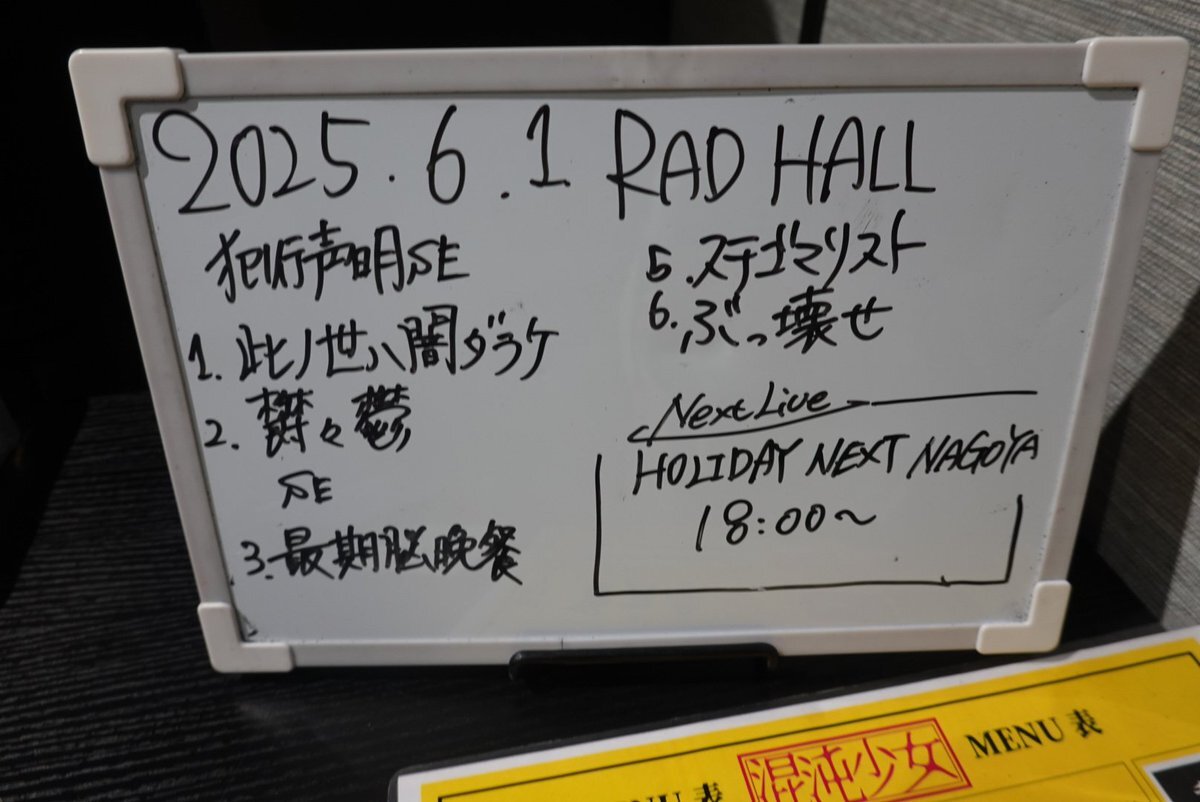 2025.6.1 RAD HALL
犯行声明SE
1. 此ノ世ハ闇ダラケ
2. 欝々鬱
SE
3. 最期脳晩餐
5. ステゴマリスト
6. ぶっ壊せ
Next Live
HOLIDAY NEXT NAGOYA
18:00〜
混沌少女
MENU 表
NU 表